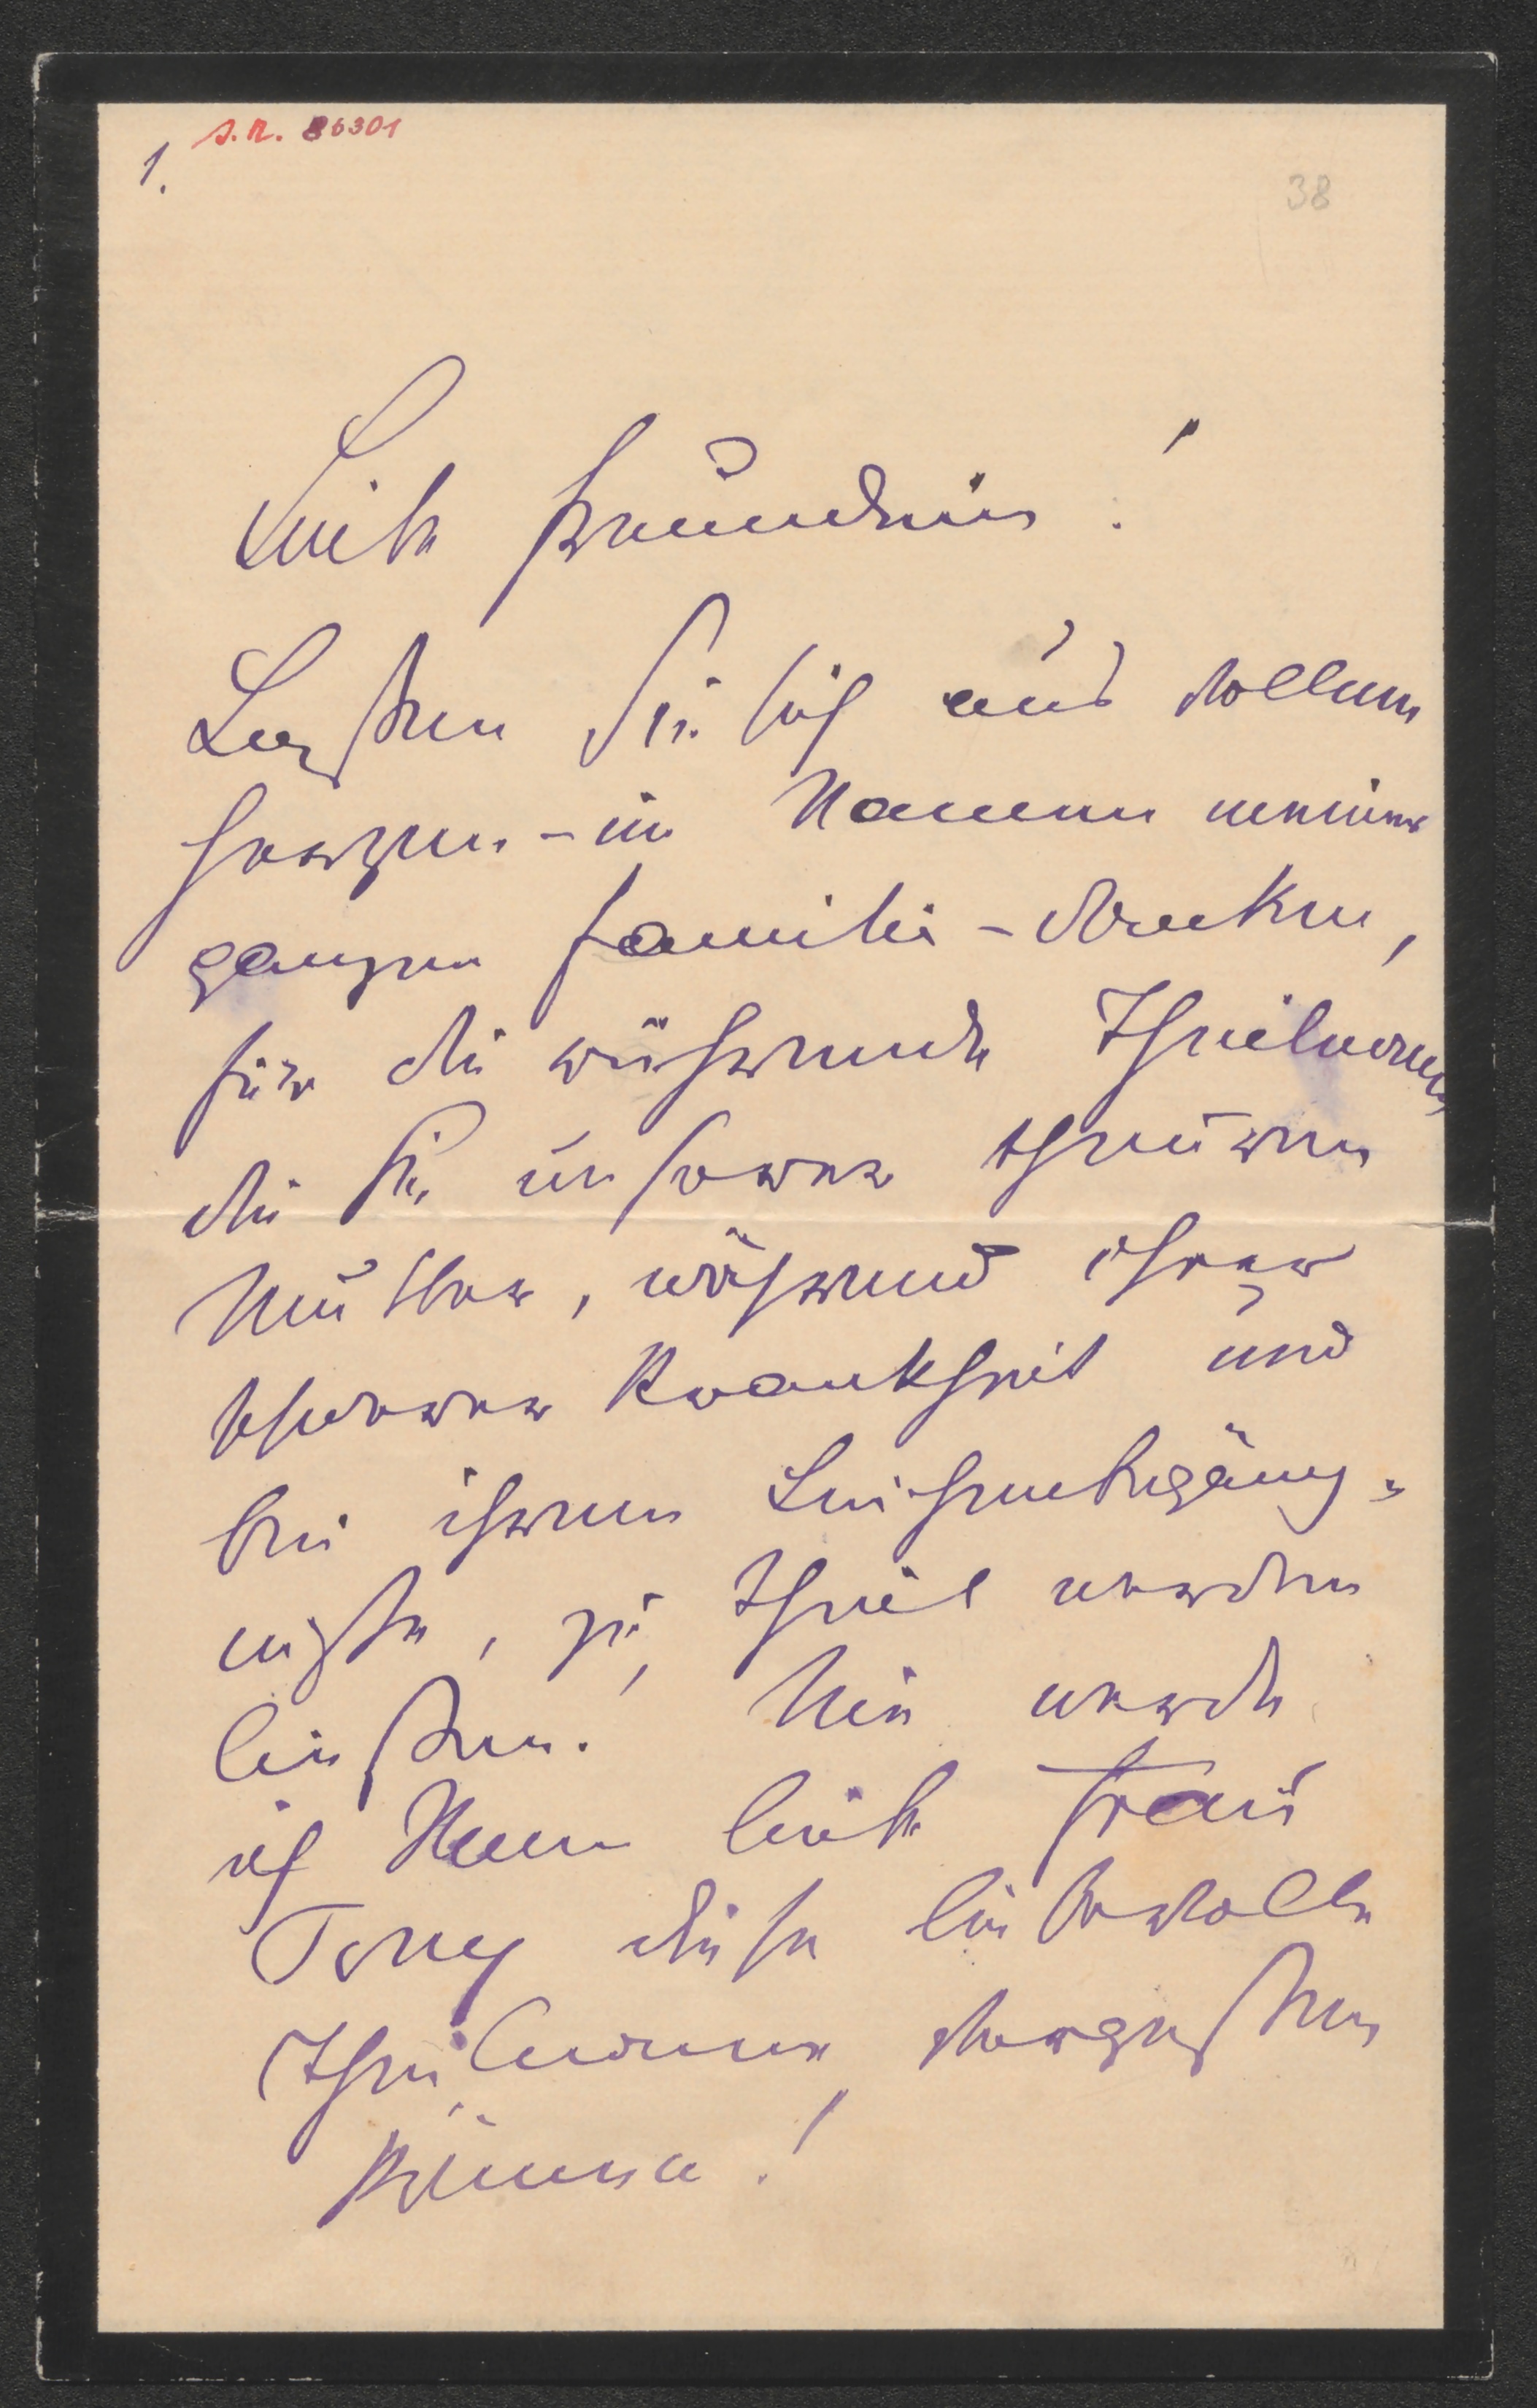 1.
s.n. 86301
38
Liebe Freundin!
Laßen Sie sich aus vollem
Herzen - im Namen meiner
ganzen Familie - danken,
für die rührende Theilname
die Sie unserer theuren
Mutter, während ihrer
schweren Krankheit und
bei ihrem Leichenbegäng-
niße, zu Theil werden
ließen! Nie werde
ich Ihnen liebe Frau
Tony diese liebevolle
Theilname vergeßen
können!